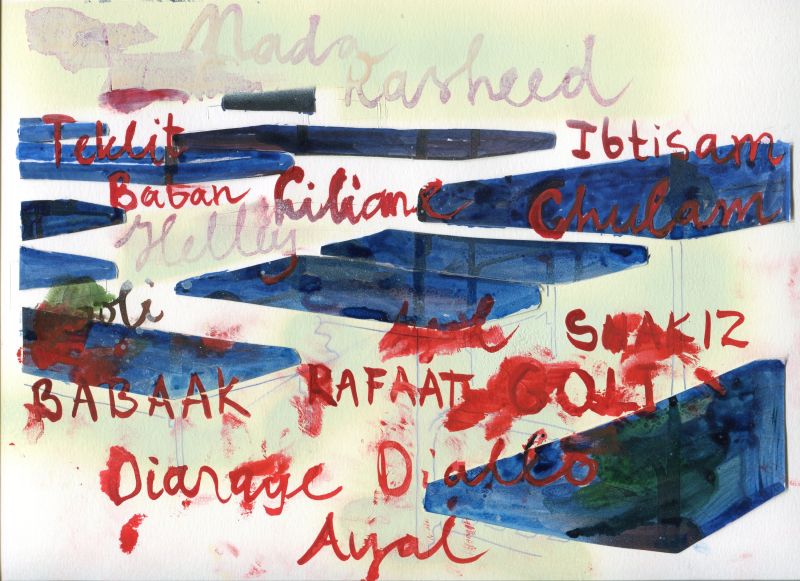 Nada
Rasheed
Teklit Ibtisam
Baban Liliane Chulam
Helley
SHAKIZ
BABAAK RAFAAT GOLI
Diaraye Diallo
Ayal